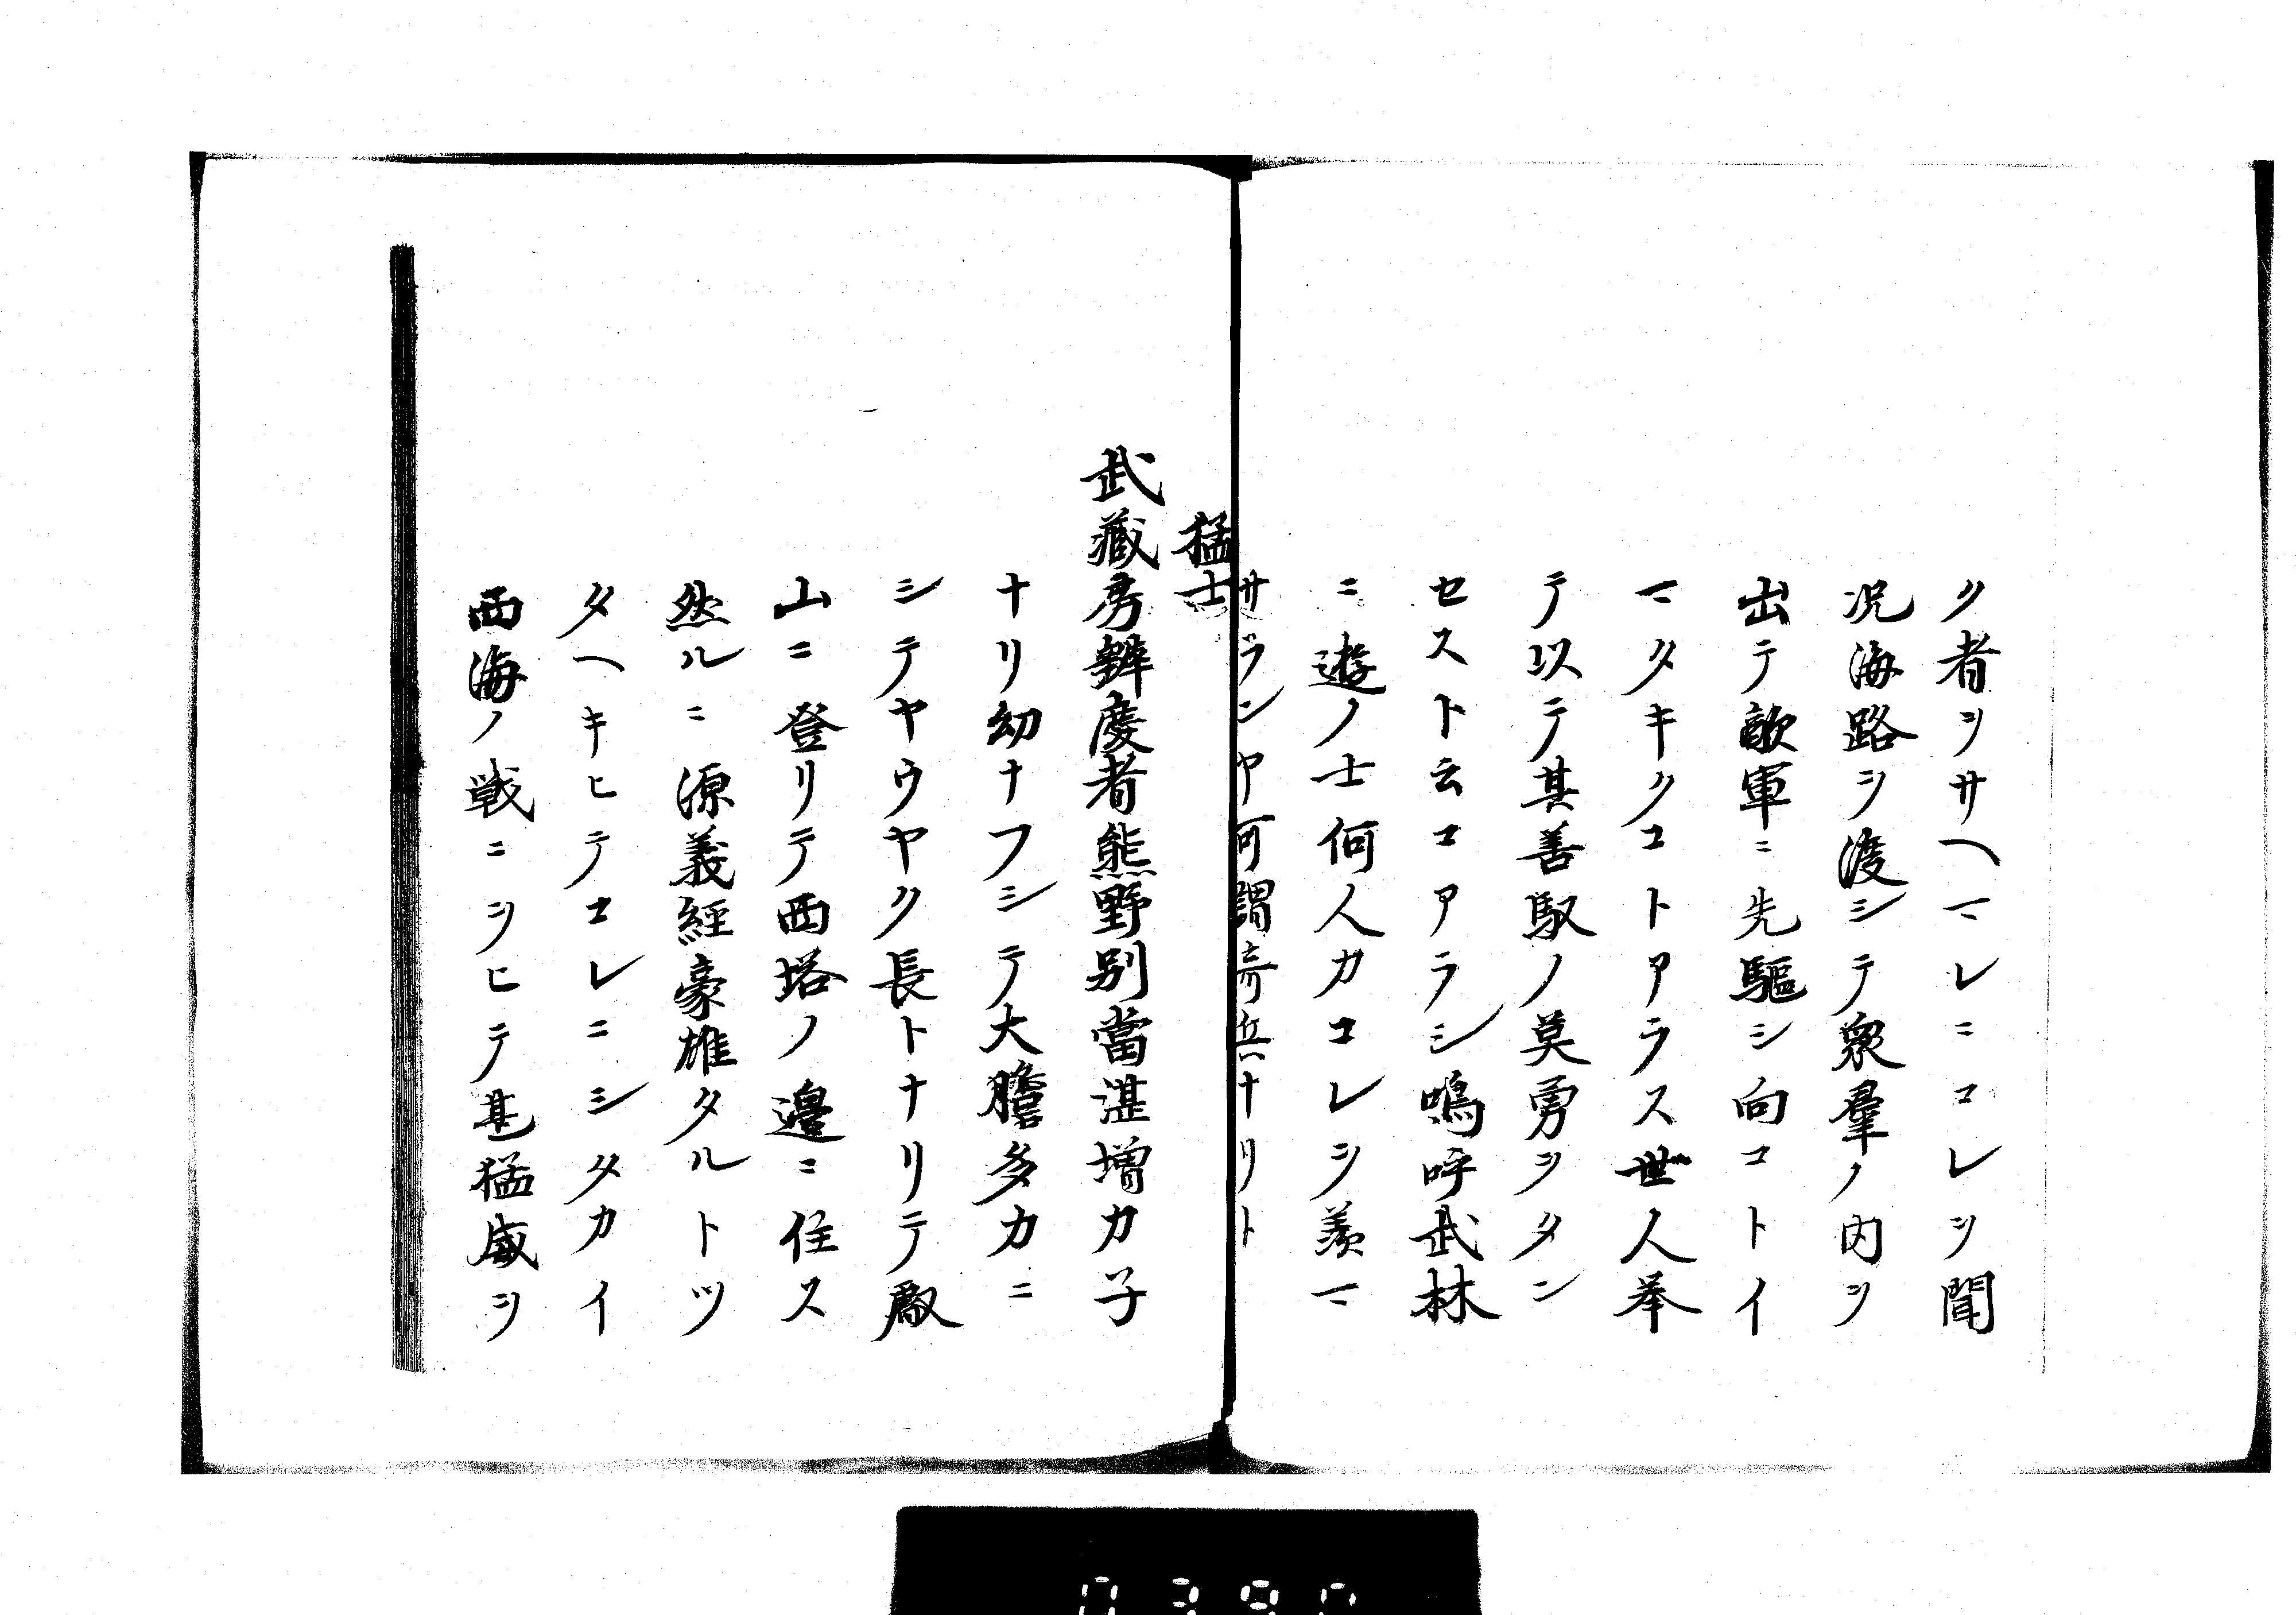 ク者ヲサヘマレニコレヲ聞
况海路ヲ渡シテ衆羣ノ内ヲ
出テ敵軍ニ先驅シ向コトイ
マタキクコトアラス世人挙
テ以テ其善馭ノ莫勇ヲタン
セスト云コアラシ嗚呼武林
ニ遊ノ士何人カコレヲ羨マ
サランヤ可謂奇兵ナリト
猛士
武藏房辨慶者熊野別當湛増カ子
ナリ幼ナフシテ大膽多力ニ
シテヤウヤク長トナリテ厰
山ニ登リテ西塔ノ邉ニ住ス
然ルニ源義經豪雄タルトツ
タヘキヒテコレニシタカイ
西海ノ戦ニヲヒテ甚猛威ヲ